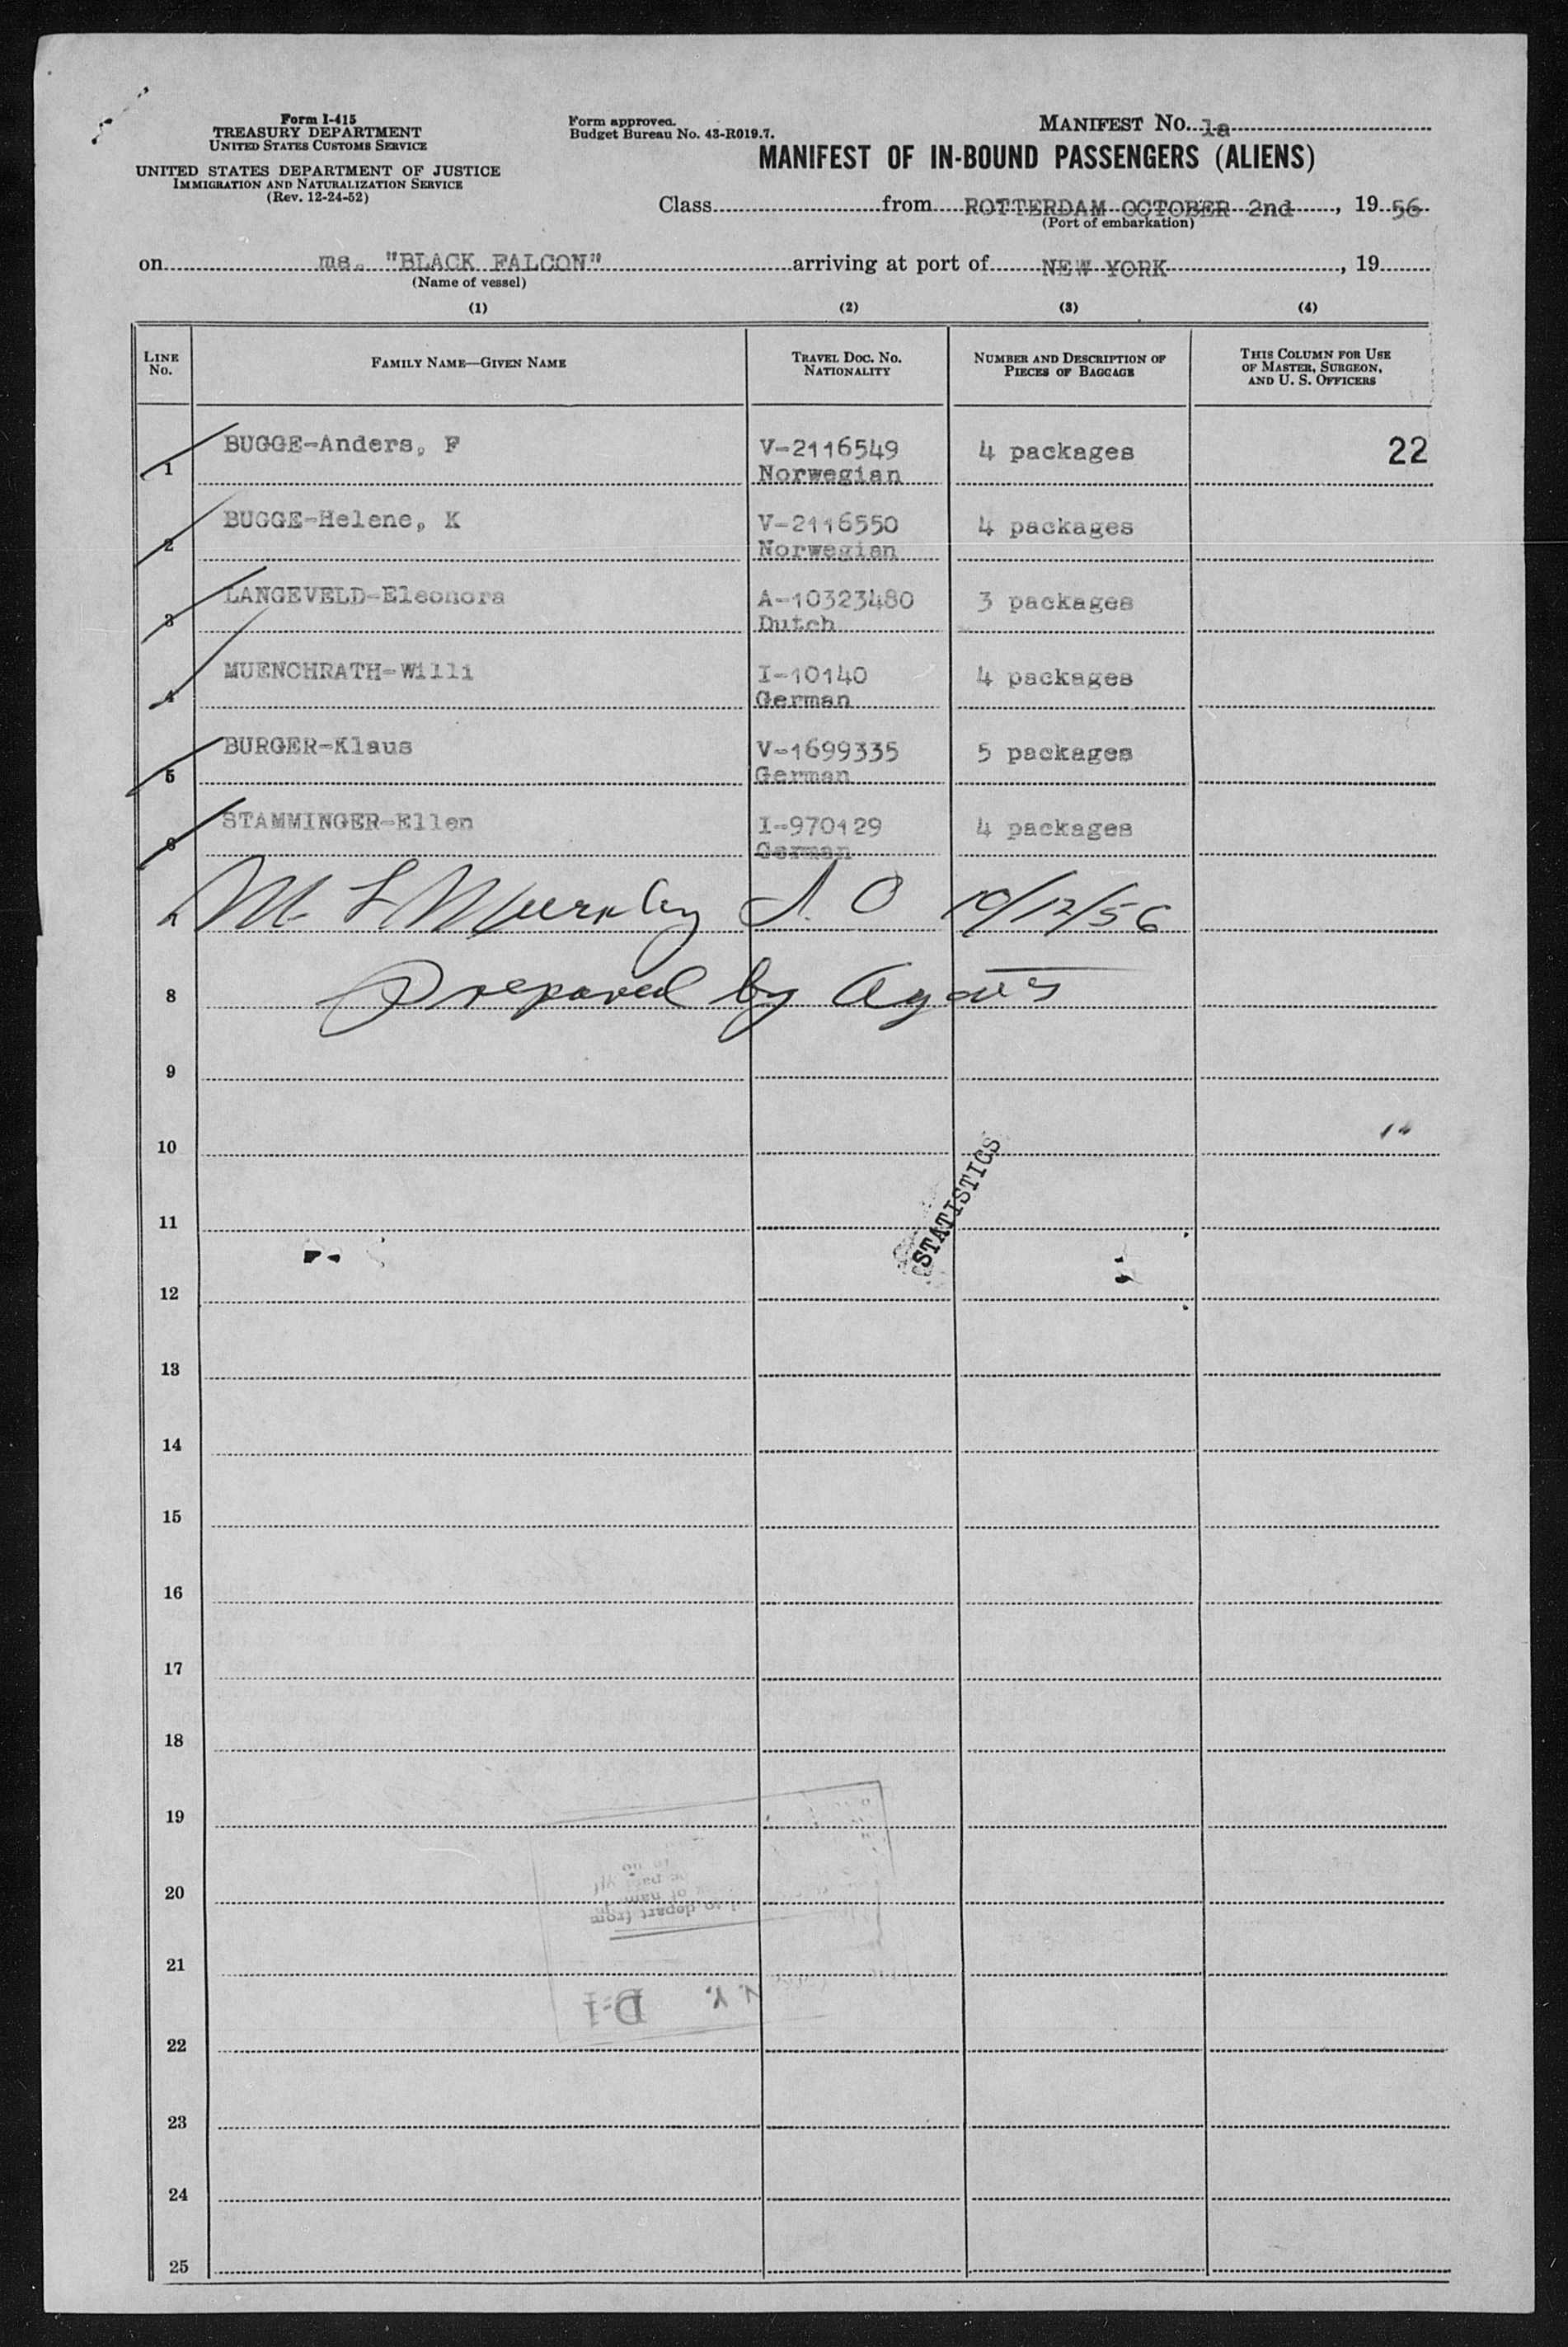 Form I-415
TREASURY DEPARTMENT
UNITED STATES CUSTOMS SERVICE
UNITED STATES DEPARTMENT OF JUSTICE
IMMIGRATION AND NATURALIZATION SERVICE
(Rev. 12-24-52)
Form approved.
Budget Bureau No. 43-R019.7.
MANIFEST No. 1a
MANIFEST OF IN-BOUND PASSENGERS (ALIENS)
Class from ROTTERDAM OCTOBER 2nd, 19 56
(Port of embarkation)
on ms. "BLACK FALCON" arriving at port of NEW YORK, 19
(Name of vessel)
(1) (2) (3) (4)
LINE No. FAMILY NAME—GIVEN NAME TRAVEL DOC. NO. NATIONALITY NUMBER AND DESCRIPTION OF PIECES OF BAGGAGE THIS COLUMN FOR USE OF MASTER, SURGEON, AND U. S. OFFICERS
1 BUGGE-Anders, F V-2116549 4 packages 22
Norwegian
2 BUGGE-Helene, K V-2116550 4 packages
Norwegian
3 LANGEVELD-Eleonora A-10323480 3 packages
Dutch
4 MUENCHRATH-Willi I-10140 4 packages
German
5 BURGER-Klaus V-1699335 5 packages
German
6 STAMMINGER-Ellen I-970129 4 packages
German
M L Murphy I.O 10/12/56
8 Prepared by
9
10
11
STATISTICS
12
13
14
15
16
17
18
19
20
to depart from
21
N.Y. D-1
22
23
24
25